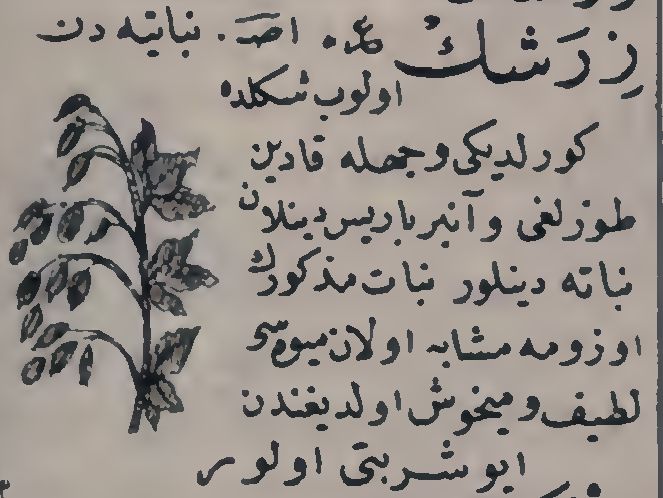 زِرَشكْ اصـ . نباتیه دن
اولوب شکلده
کورلدیکی وجمله قادین
طوزلغی وآنبرباریس دینلان
نباته دینلور نبات مذکورك
اوزومه مشابه اولان میوه سی
لطیف ومیخوش اولدیغندن
ایو شربتی اولور